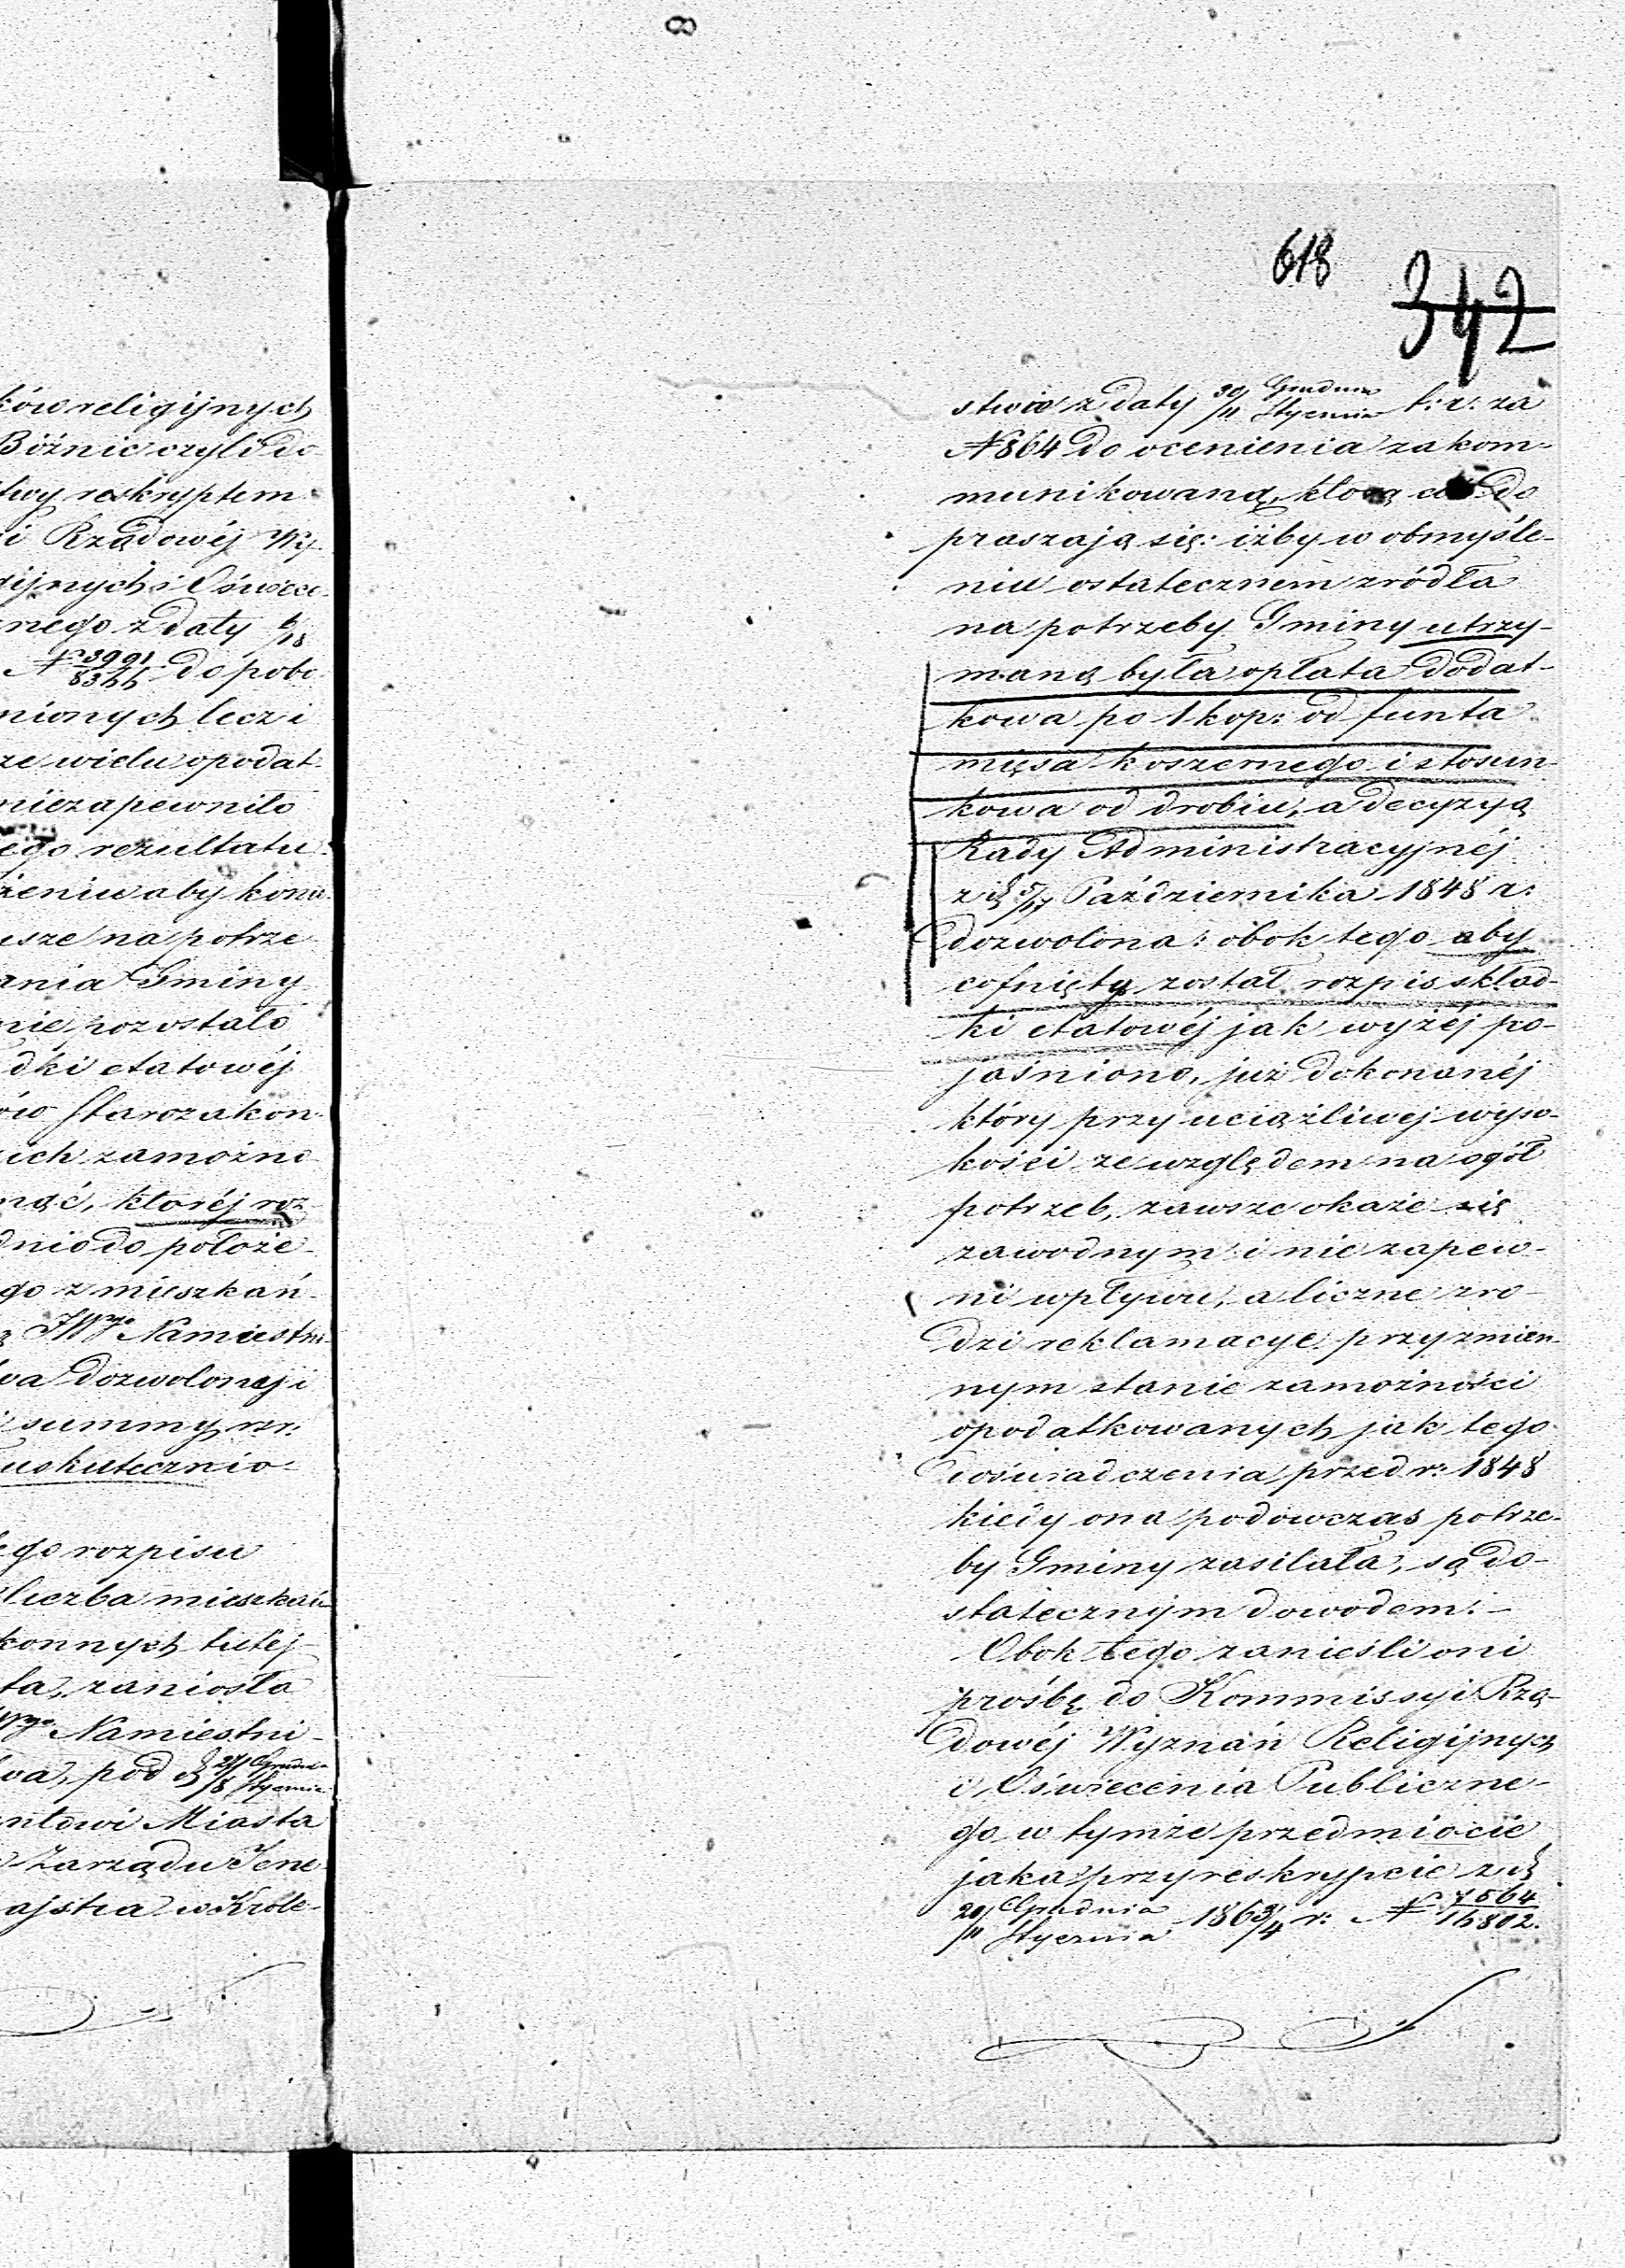 8
ków religijnych
Bóżnic czyli do
twy reskryptem
i Rządowéj Wy-
gijnych i Oświece-
nego z daty 6/18
N 3991/8355 do pobo
nionych lecz i
ze wielu opodat-
niezapewniło
ego rezultatu.
żeniu aby kon
usze na potrze
ania Gminy
nie pozostało
dki etatowéj
ów Starozakon-
ich zamożno
ność, któréj roz-
dnio do położe-
go z mieszkań-
JWgo Namiestni-
wa dozwolonej i
summy rsr:
uskutecznio-
ego rozpisu
liczba mieszkań-
konnych tutej-
ta, zaniosła
Wgo Namiestni-
wa, pod d 27/8 Grudnia/Stycznia
ntowi Miasta
Zarządu Jene-
ajstra w Króle-
618
342
stwie z daty 30/11 Grudnia/Stycznia t: r: za
N 864 do ocenienia zakom-
munikowaną, którą do
praszają się: iżby w obmyśle-
niu ostatecznem zródła
na potrzeby Gminy utrzy-
maną była opłata dodat-
kowa po 1 kop: od funta
mięsa koszernego i stosun-
kowa od drobiu, a decyzyą
Rady Administracyjnéj
z d 5/17 Października 1848 r:
dozwolona: obok tego aby
cofnięty został rozpis skład-
ki etatowéj jak wyżéj po-
jaśniono, już dokonanéj
który przy uciążliwej wyso-
kości ze względem na ogół
potrzeb, zawsze okaże się
zawodnym i nie zapew-
ni wpływu, a liczne zro-
dzi reklamacye przy zmien-
nym stanie zamożności
opodatkowanych jak tego
doświadczenia przed r: 1848
kiedy ona podowczas potrze-
by Gminy zasilała, są do-
statecznym dowodem:-
Obok tego zanieśli oni
prośbę do Kommissyi Rzą-
dowéj Wyznań Religijnych
i Oświecenia Publiczne-
go w tymże przedmiocie
jaka przy reskrypcie z d
20/11 Grudnia/Stycznia 1863/4 r: N 7564/15802.